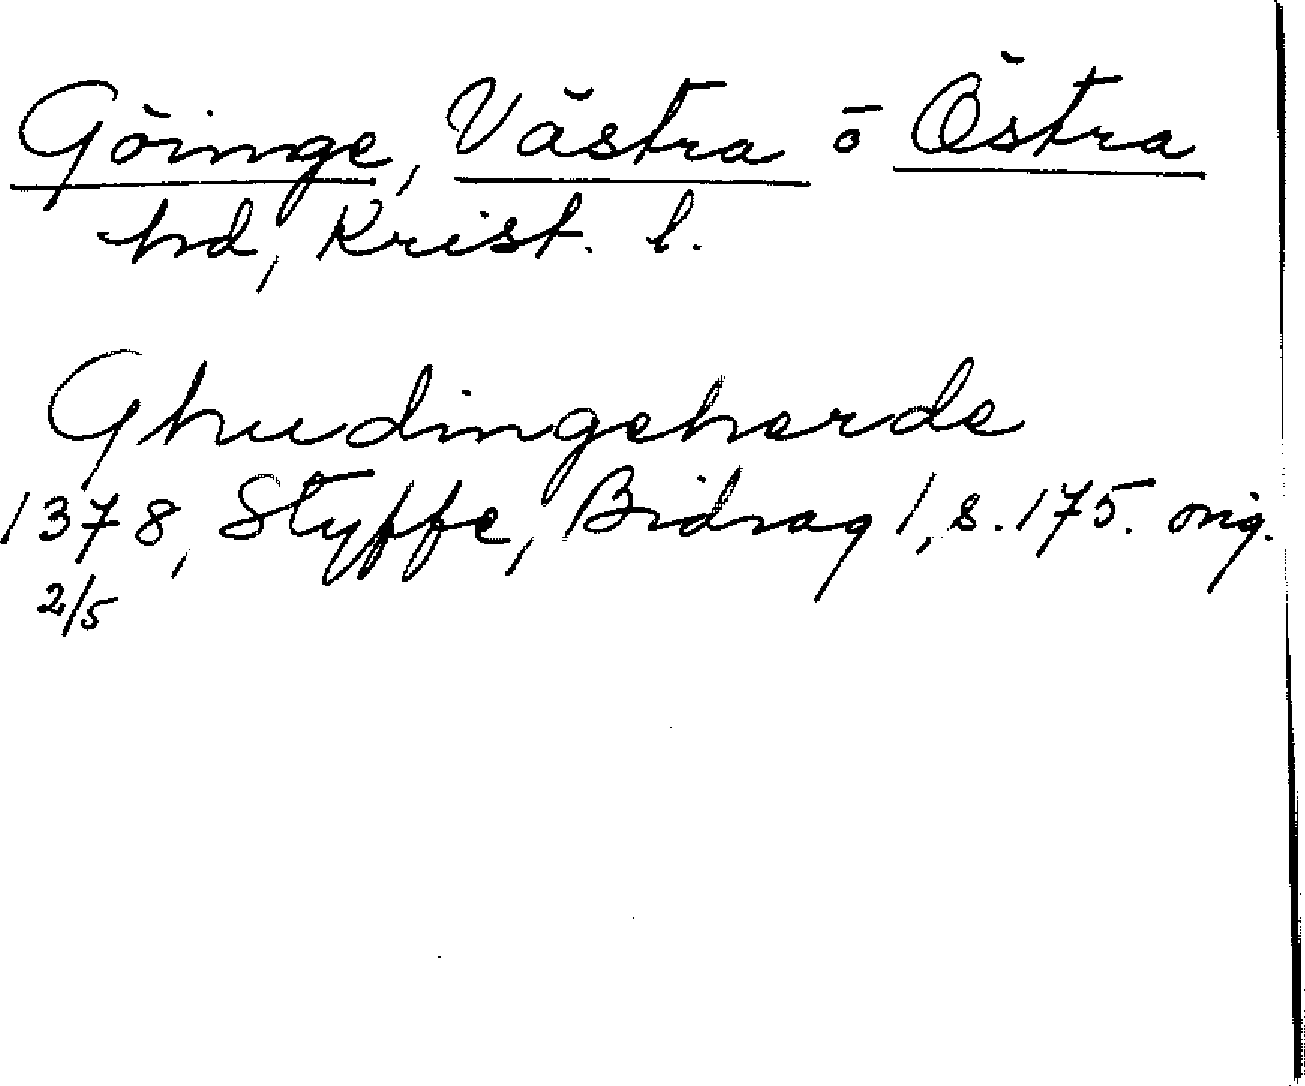 Göinge, Västra o Östra
hd, Krist. l.
Ghudingeherde
1378, Styffe, Bidrag 1, s. 175. orig.
2/5